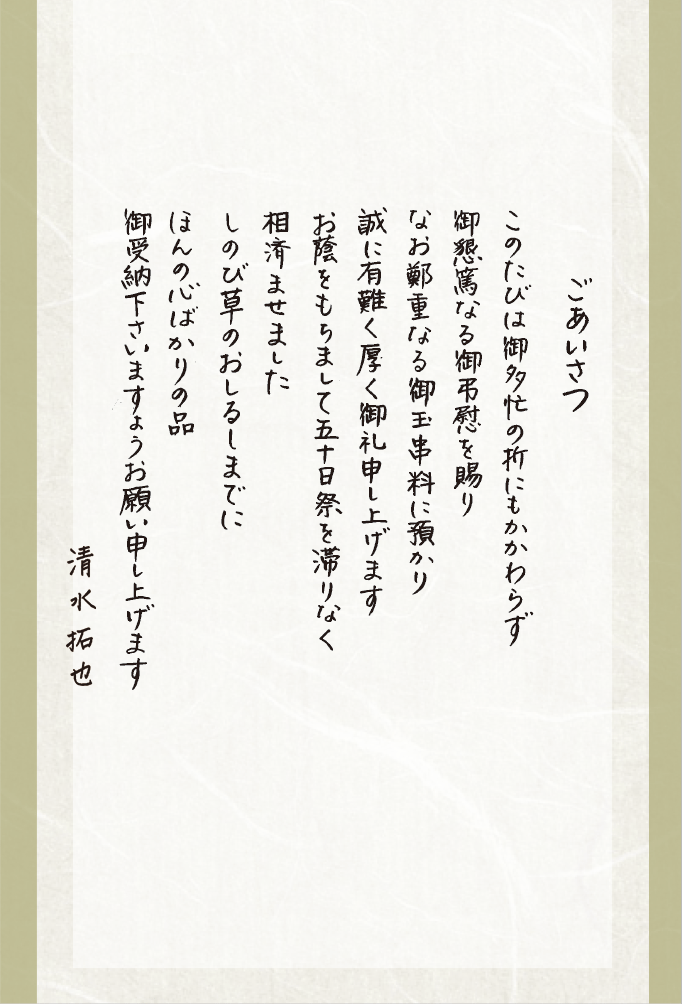 ごあいさつ
このたびは御多忙の折にもかかわらず
御懇篤なる御弔慰を賜り
なお鄭重なる御玉串料に預かり
誠に有難く厚く御礼申し上げます
お蔭をもちまして五十日祭を滞りなく
相済ませました
しのび草のおしるしまでに
ほんの心ばかりの品
御受納下さいますようお願い申し上げます
清水拓也